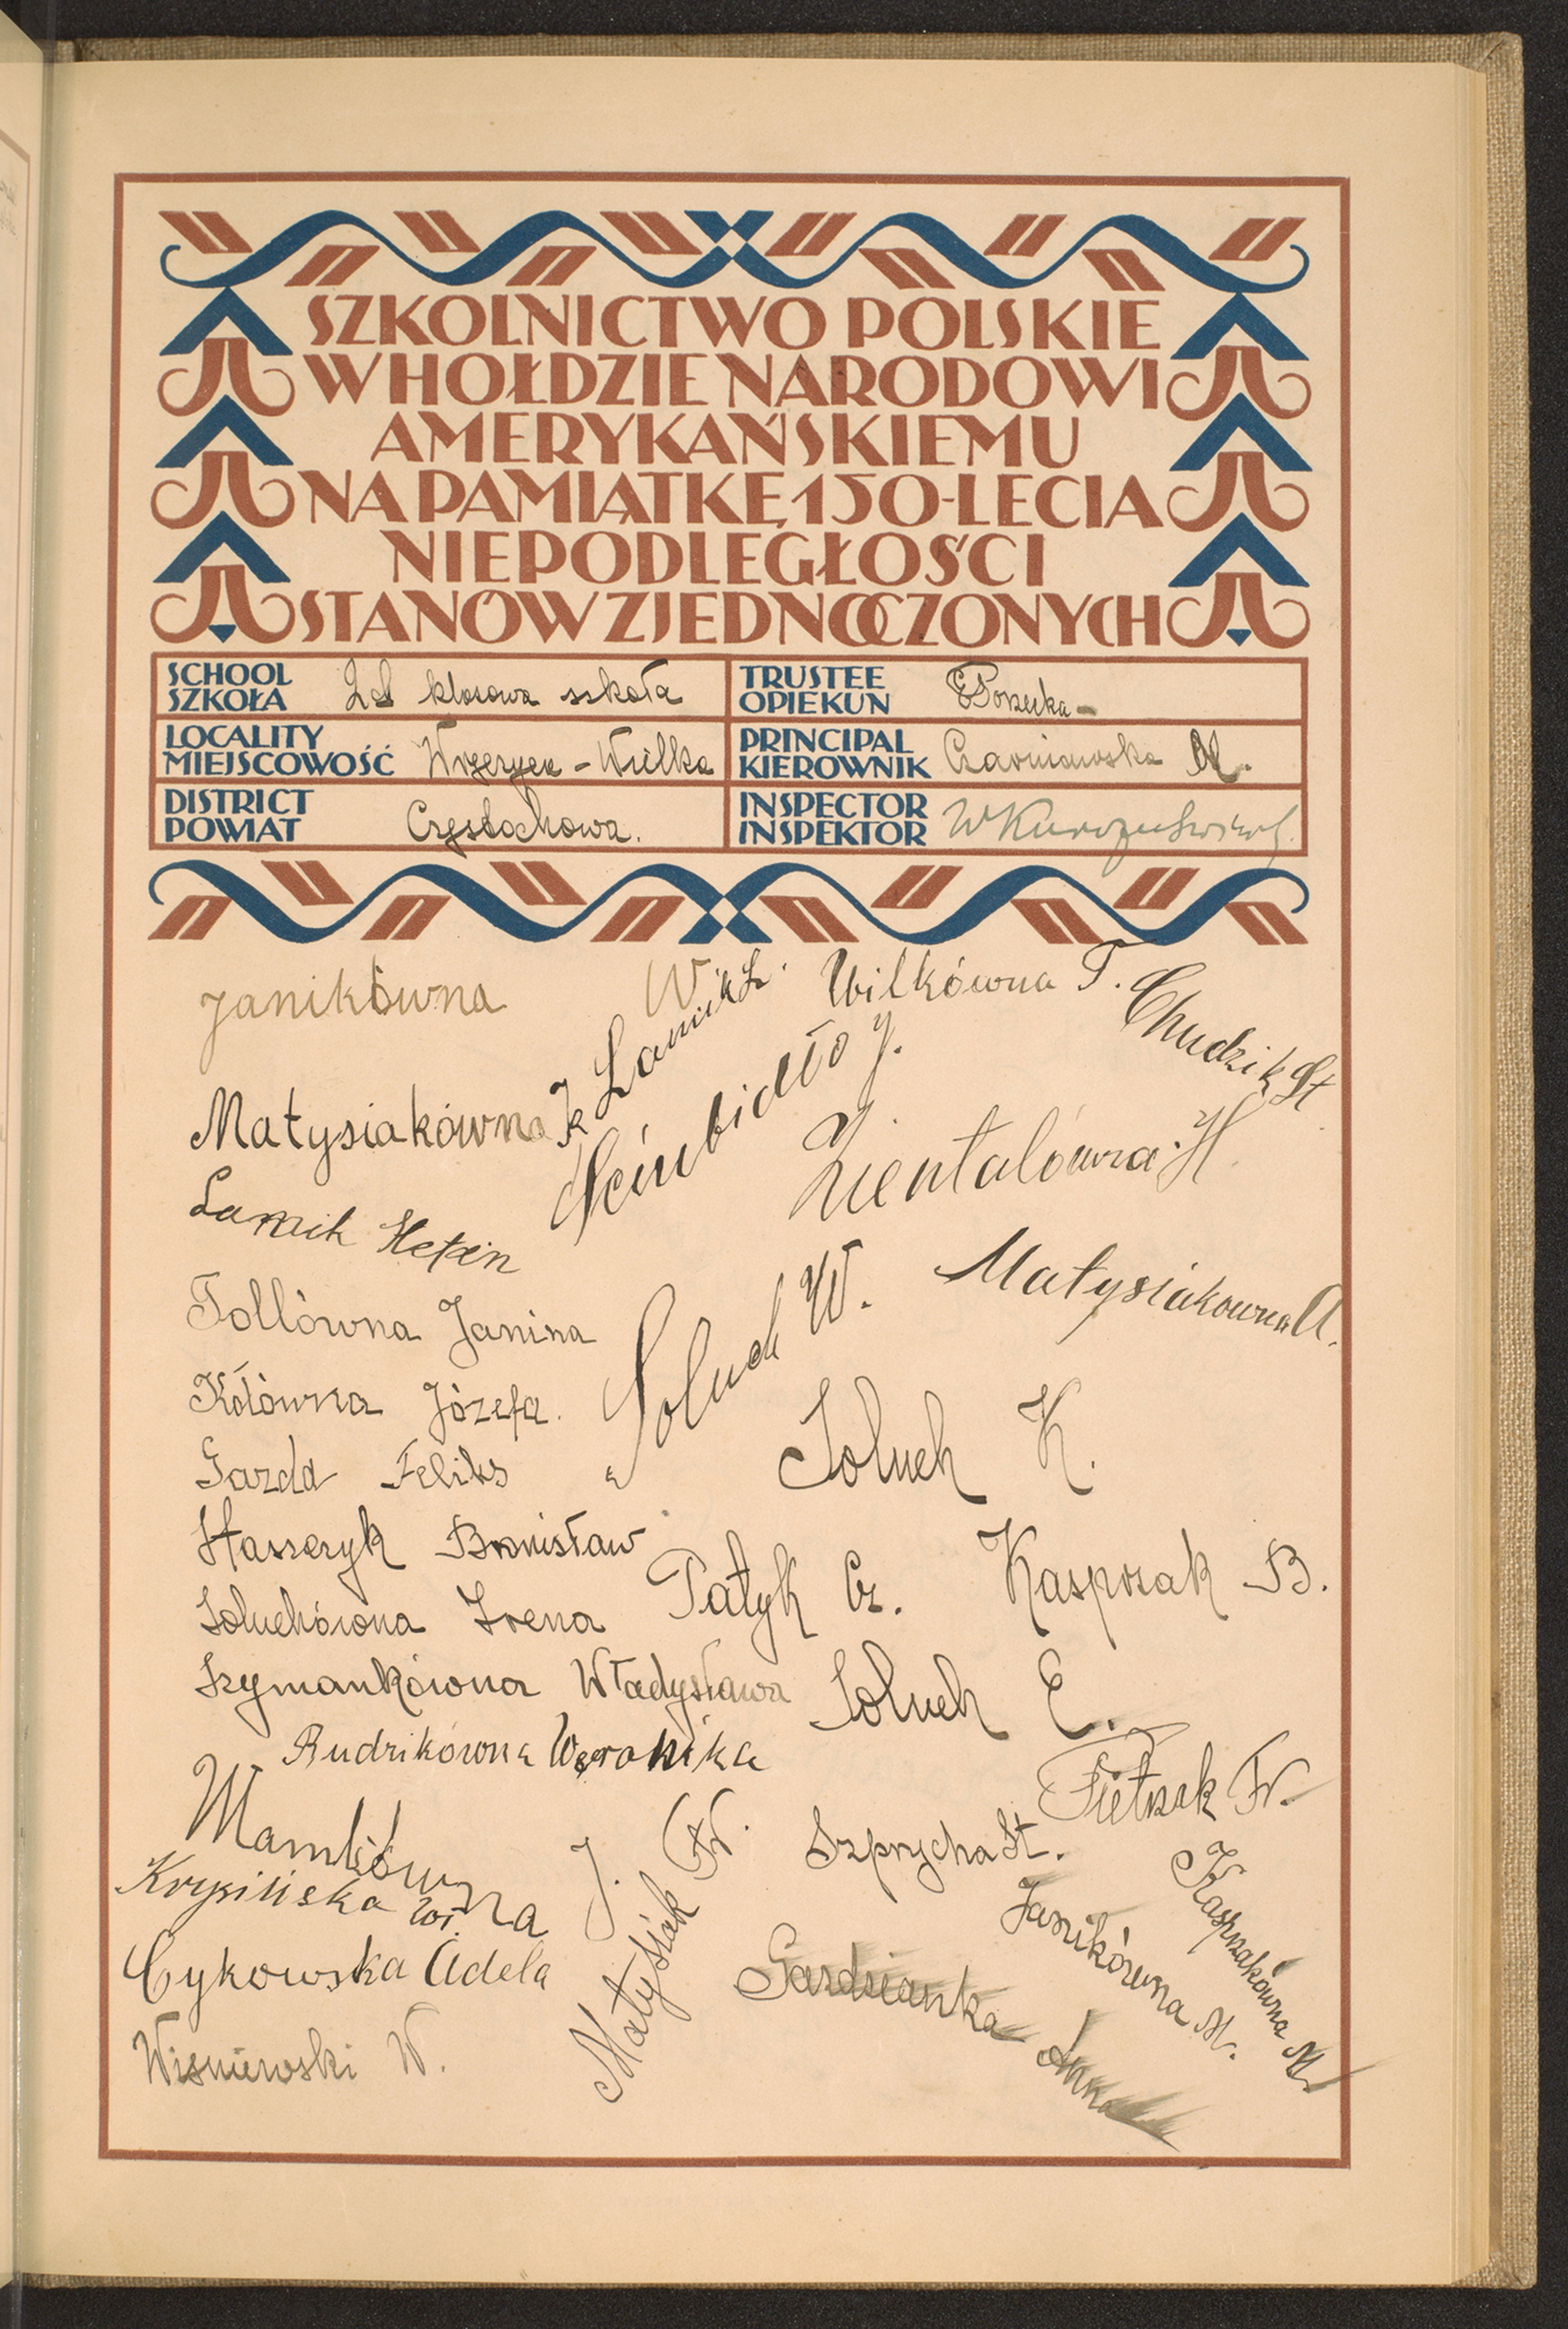 SZKOLNICTWO POLSKIE
W HOŁDZIE NARODOWI
AMERYKAŃSKIEMU
NA PAMIĄTKĘ 150-LECIA
NIEPODLEGŁOŚCI
STANÓW ZJEDNOCZONYCH
SCHOOL
SZKOŁA klasowa szkoła
TRUSTEE
OPIEKUN
LOCALITY
MIEJSCOWOŚĆ Wręczyca - Wielka
PRINCIPAL
KIEROWNIK Czarniawska M.
DISTRICT
POWIAT Częstochowa.
INSPECTOR
INSPEKTOR
Janikówna W
Lamik L.
Wilkówna T.
Chudzik St
Matysiakówna K
Nierubidło J.
Zientalówna H.
Lamik
Tollówna Janina
Soluch W.
Matysiakowna A.
Kołówna Józefa.
Soluch K.
Gazda Feliks
Staszczyk Bronisław
Patyk Cz.
Kasprzak B.
Soluchówna Irena
Szymankówna Władysława
Soluch E.
Rudzikówna Weronika
Pietrzak Fr.
Mamlkówna J.
Matysiak Fr.
Szprycha St.
Krysińska Wł.
Janikówna M.
Kasprzakówna M.
Cykowska Adela
Gazdzianka Anna
Wiśniewski W.